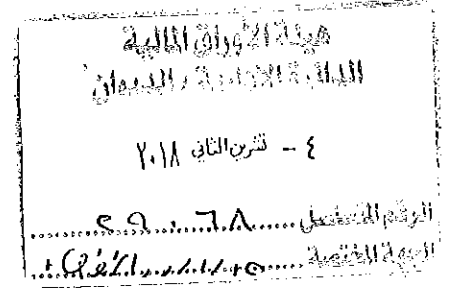 هيئة الأوراق المالية
الدائرة الإدارية / الديوان
٤ - تشرين الثاني ٢٠١٨
الرقم المتسلسل
الجهة المختصة